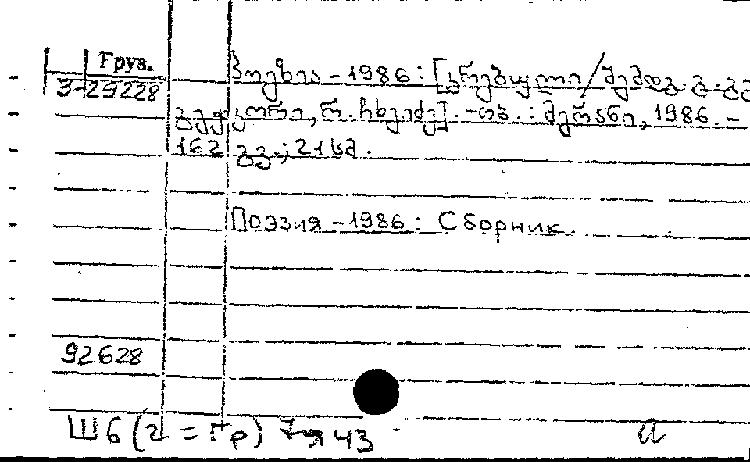 Груз.
3-29228
პოეზია - 1986 : [კრებული / შემდგ. გ. გე
გეჭკორი, რ. ჩხეიძე]. - თბ. : მერანი, 1986. -
162 გვ.; 21 სმ.
Поэзия - 1986 : Сборник.
92628
Ш6(2=Гр)7я43